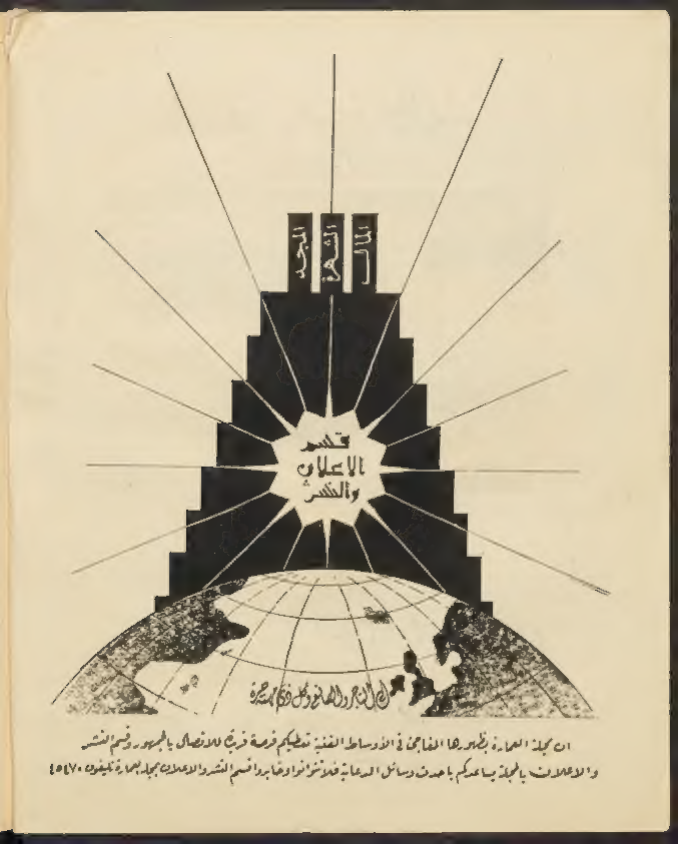 المجد
الشهرة
المال
قسم
الاعلان
والنشر
التاجر والصانع وكل ذي مهنة حرة
ان مجلة العمارة بظهورها المفاجئ في الأوساط الفنية تعطيكم فرصة فريدة للاتصال بالجمهور وقسم النشر
والاعلان بالمجلة يساعدكم بأحدث وسائل الدعاية فلا تتوانوا وخابروا قسم النشر والاعلان بمجلة العمارة تليفون ٤٥٤٧٠